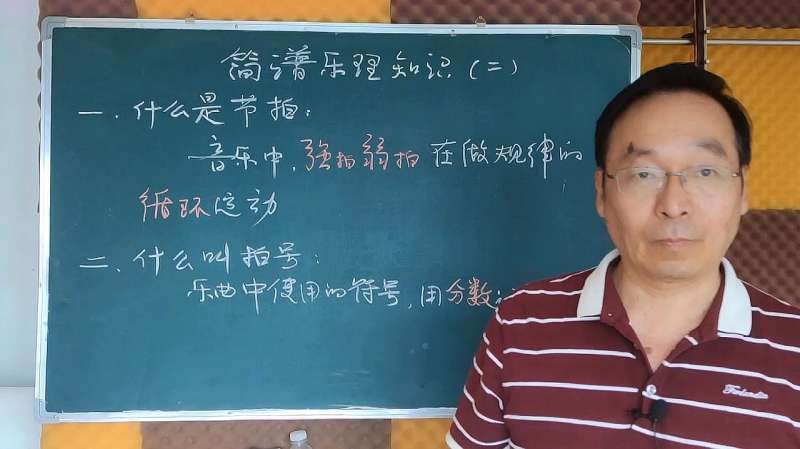 简谱乐理知识(二)
一、什么是节拍:
音乐中,强拍弱拍在做规律的
循环运动
二、什么叫拍号:
乐曲中使用的符号,用分数